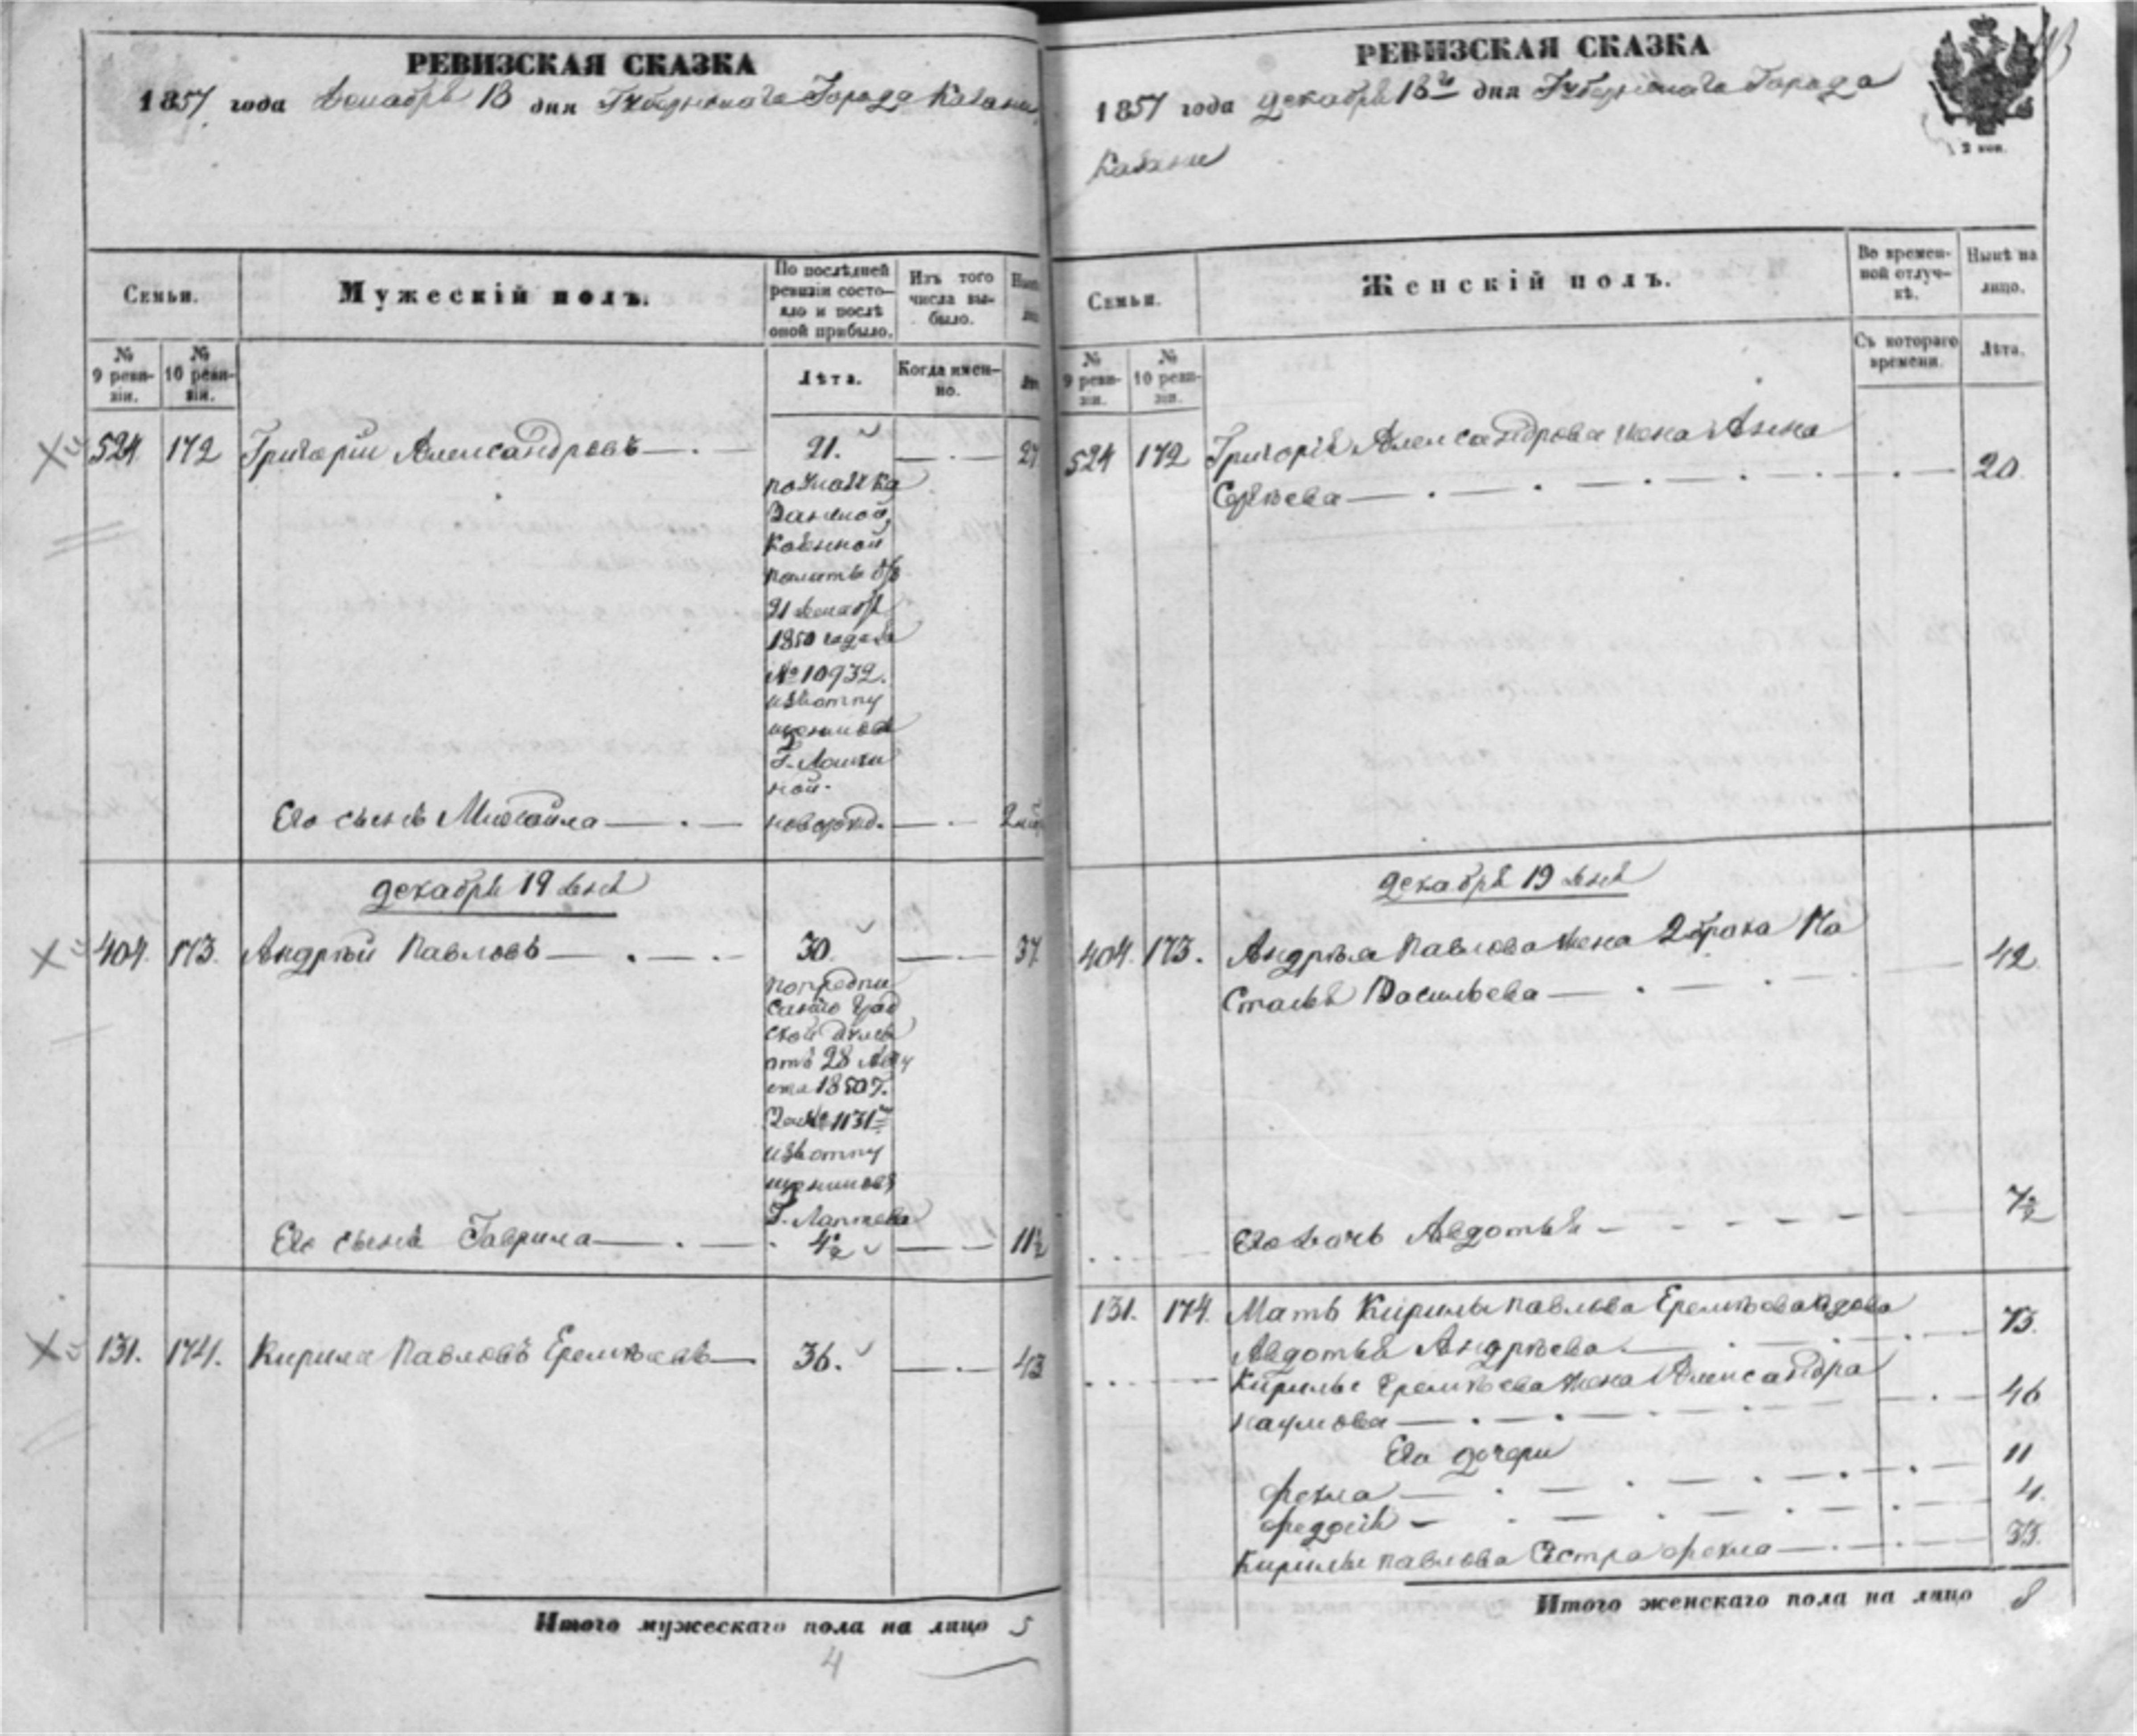 РЕВИЗСКАЯ СКАЗКА
1857 года Декабря 13 дня Губернскаго Города Казани
Семьи.
Мужескій полъ.
По послѣдней ревизіи состояло и послѣ оной прибыло.
Изъ того числа выбыло.
№ 9 ревизіи.
№ 10 ревизіи.
Лѣта.
Когда именно.
524 172 Григорій Александровъ 21. 27
по указу Ка
Казенной
палаты
21 Декабря
1850 года за
№ 10932.
изъ отпу
щенников
Г.
ной.
Его сынъ Михайла новорожд. 2
декабря 19 дня
404. 173. Андрей Павловъ 30. 37
по предпи
санію Град
ской Думы
отъ 28 Авгу
ста 1850 г.
за № 1131
изъ отпу
щенниковъ
Г. Лаптева
Его сынъ Гаврила 4½ 11½
131. 174. Кирила Павловъ Еремѣевъ 36. 43
Итого мужескаго пола на лицо 5
4
РЕВИЗСКАЯ СКАЗКА
1857 года Декабря 13го дня Губернскаго Города
Казани
2 коп.
Семьи.
Женскій полъ.
Во временной отлучкѣ.
Нынѣ на лицо.
№ 9 ревизіи.
№ 10 ревизіи.
Съ котораго времени.
Лѣта.
524 172 Григорія Александрова жена Анна
Сергѣева 20
декабря 19 дня
404. 173. Андрѣя Павлова жена 2 брака На
стасья Васильева 42
Его дочь Авдотья 7½
131. 174. Мать Кирилы Павлова Еремѣева вдова
Авдотья Андрѣева 73.
Кирилы Еремѣева жена Александра
Наумова 46
Его дочери
Фекла 11
Федосія 4.
Кирилы Павлова Сестра Фекла 35.
Итого женскаго пола на лицо 8